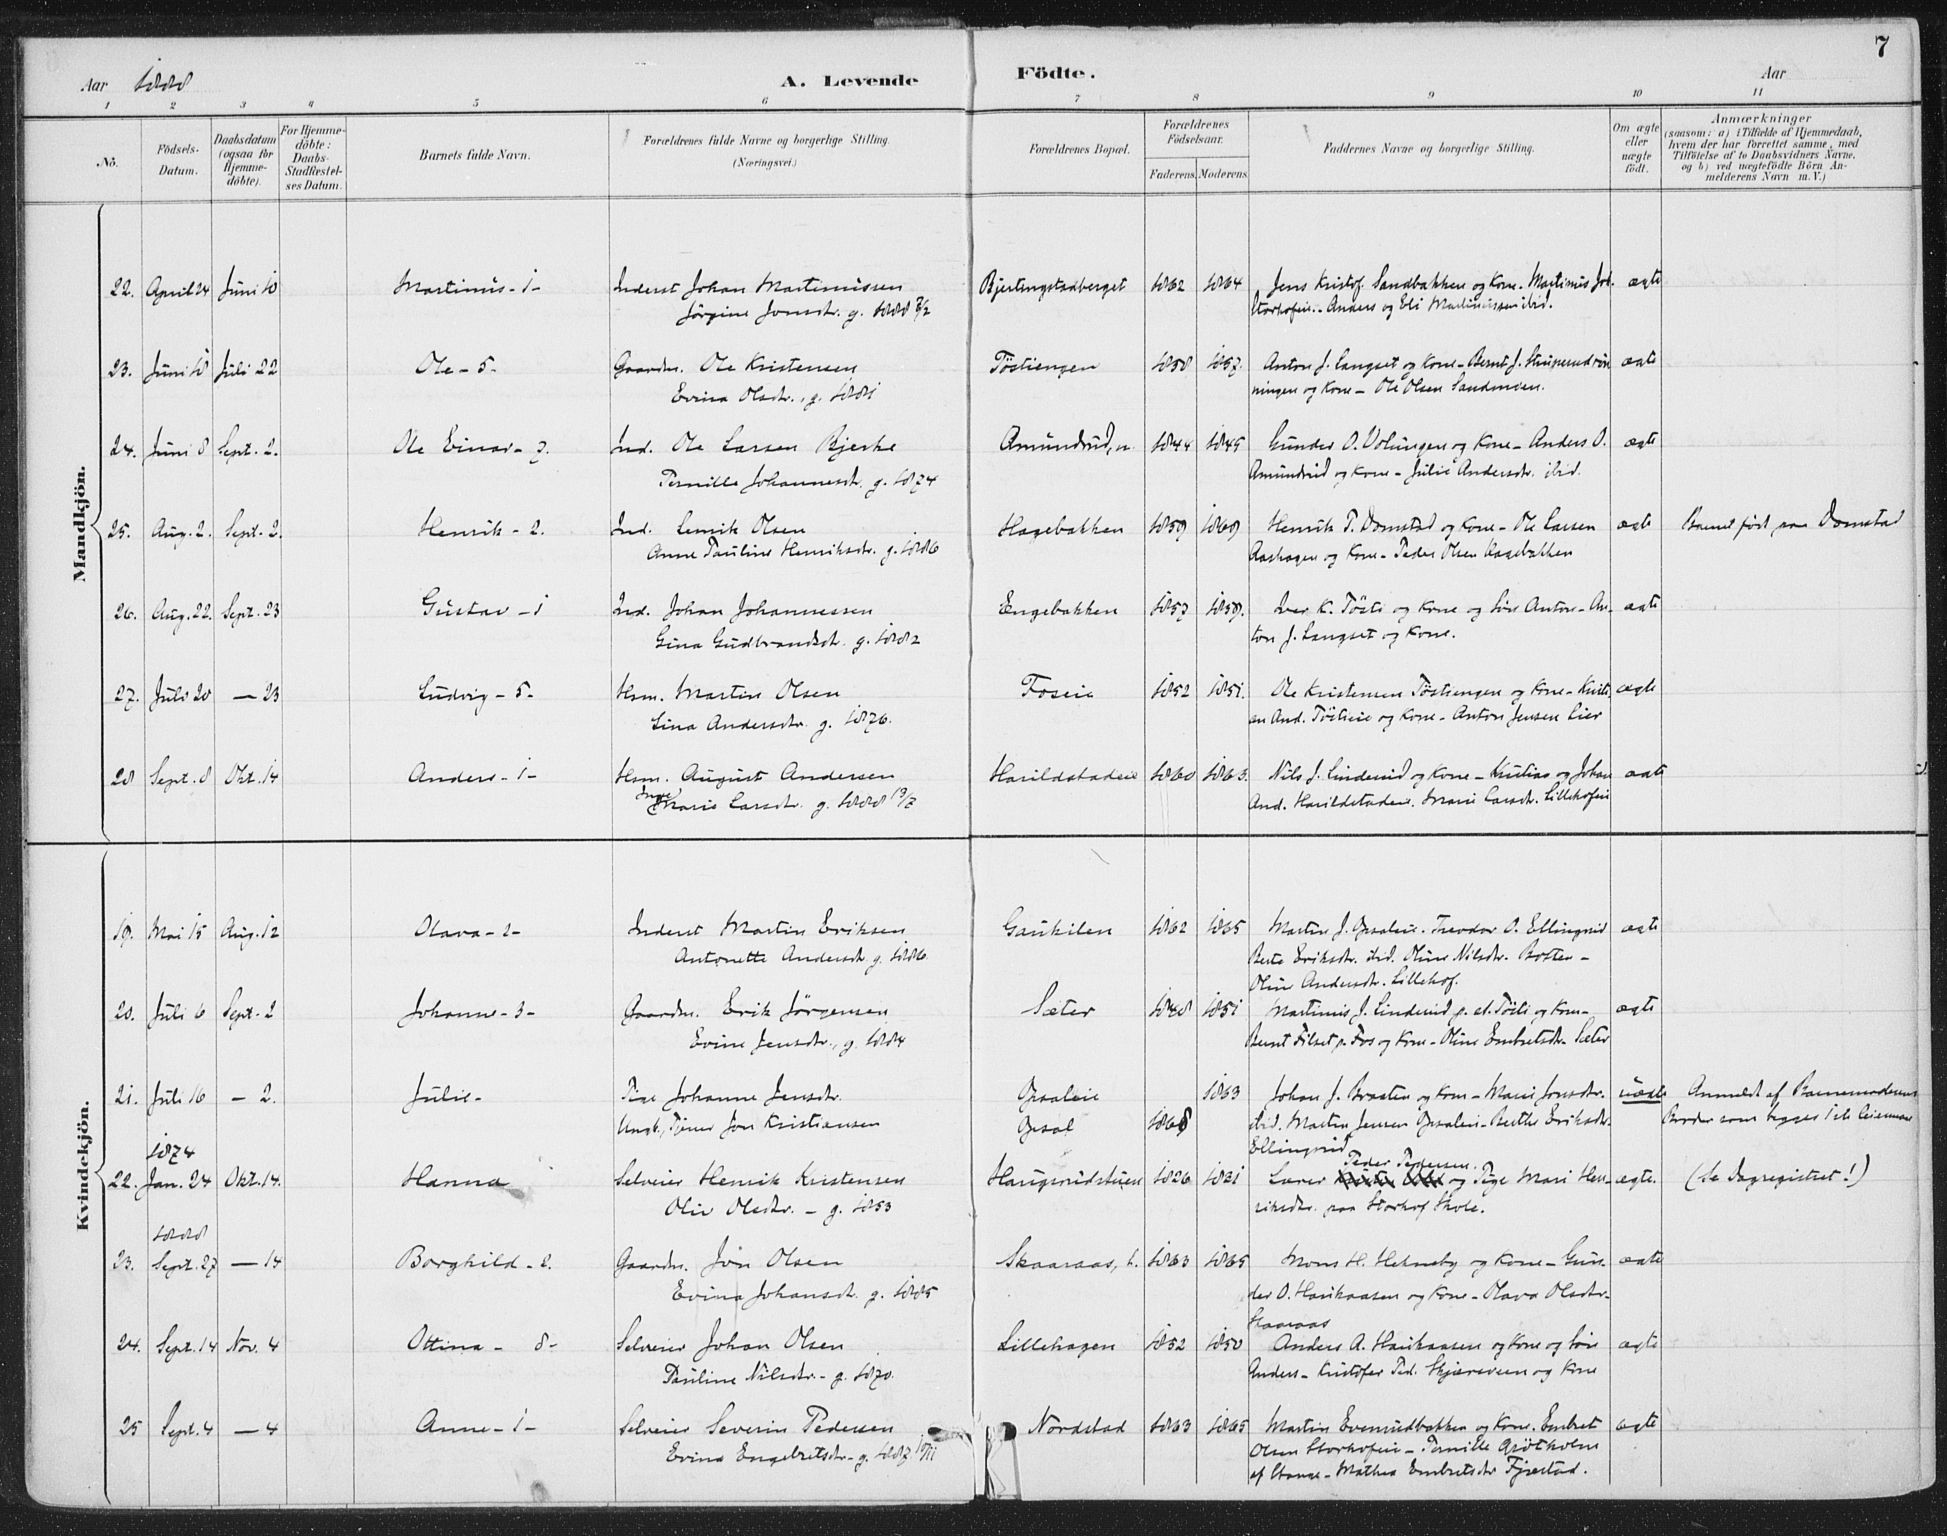 7
Aar 1888 A. Levende Födte. Aar
1 2 3 4 5 6 7 8 9 10 11
No.
Födsels-Datum.
Daabsdatum (ogsaa for Hjemme-döbte).
For Hjemme-döbte: Daabs-Stadfæstel-ses Datum.
Barnets fulde Navn.
Forældrenes fulde Navne og borgerlige Stilling. (Næringsvei.)
Forældrenes Bopæl.
Forældrenes Födselsaar.
Faderens. Moderens.
Faddernes Navne og borgerlige Stilling.
Om ægte eller uægte födt.
Anmærkninger
(saasom: a) i Tilfælde af Hjemmedaab,
hvem der har forrettet samme, med
Tilföielse af to Daabsvidners Navne,
og b) ved uægtefödte Börn An-
melderens Navn m. V.)
Mandkjön.
22. April 24 Juni 10 Martinus - 1 - Inderst Johan Martinussen Bjertingstadberget 1862 1864 Jens Kristof. Sandbakken og Kone. Martinus Joh. ægte
Jörgine Jonsdtr. g. 1888 Storhofeie. - Anders og Eli Martinussen ibid.
23. Juni 18 Juli 22 Ole - 5 - Gaardm. Ole Kristensen Töstiengen 1858 1857. Anton J. Langset og Kone - Bernt J. ægte
Evina Olsdtr., g. 1881 ningen og Kone - Ole Olsen Sandmoen.
24. Juni 8 Sept. 2. Ole Einar - 7. Ind. Ole Larsen Bjerke Amundrud, n. 1844 1845 Gunder O. Volungen og Kone - Anders O. ægte
Pernille Johannesdt. g. 1874 Amundrud og Kone - Julie Andersdtr. ibid.
25. Aug. 2. Sept. 2. Henrik - 2. Ind. Lenrik Olsen Hagebakken 1859 1869 Henrik P. Domstad og Kone - Ole Larsen ægte Barnet födt paa Domstad
Anne Pauline Henriksdtr. g. 1886 Aashagen og Kone - Peder Olsen Hagebakken
26. Aug. 22. Sept. 23 Gustav - 1 Ind. Johan Johannessen Engebakken 1857 1859. Iver K. Töste og Kone og Sön Anton - An- ægte
Gina Gudbrandsdt. g. 1882 ton J. Langset og Kone.
27. Juli 20 — 23 Ludvig - 5 - Hsm. Martin Olsen Foseie 1852 1851. Ole Kristensen Töstiengen og Kone - Kristi ægte
Lina Andersdtr. g. 1876. an And. Tösteie og Kone - Anton Jensen Lier
28 Sept. 8 Okt. 14 Anders - 1 - Hsm. August Andersen Harildstadeie 1860 1863. Nils J. Linderud og Kone - Kristian og Johan ægte
Inge Marie Larsdtr. g. 1888 19/7 And. Harildstadeie. Marie Larsdtr. Lillehofeie
Kvindekjön.
19. Mai 15 Aug. 12 Olava - 2 - Inderst Martin Eriksen Gaukilen 1862 1865 Martin J. Opsaleie. Theodor O. Ellingsrud ægte
Antonette Andersdt. g. 1886. Berte Eriksdtr. ibid. Oline Nilsdtr. Bosten -
Oline Andersdtr. Lillehof.
20. Juli 6 Sept. 2 Johanne - 3 - Gaardm. Erik Jörgensen Sæter 1848 1851 Martinus J. Linderud p. et. Töste og Kone - ægte
Evine Jensdtr., g. 1884 Bernt Filset p. Fos og Kone - Oline Embretsdtr. Sæter
21. Juli 16 — 2. Julie - Pige Johanne Jensdtr. Opsaleie 1863 Johan J. Braaten og Kone - Marie Jonsdtr. uægte Anmeldt af Barnemoderens
Ungk., Tjener Jon Kristiansen Opsal 1868 ibid. Martin Jensen Opsaleie - Berthe Eriksdtr. Broder som
Ellingsrud
1874
22. Jan. 24 Okt. 14. Hanna Selveier Henrik Kristensen Haugsrudstuen 1826 1821 Lærer Peder Pedersen. og Pige Mari Hen- ægte. (Se Dagregistret!)
Olia Olesdtr. - g. 1853 riksdtr. paa Storhof Skole.
1888
23. Sept. 27 — 14 Borghild - 2. Gaardm. Jon Olsen Skaaraas, l. 1863 1865 Mons H. Hekneby og Kone - Gun- ægte
Evina Johansdt. g. 1885 der O. Haukaasen og Kone - Olava Olsdtr.
Skaaraas
24. Sept. 14 Nov. 4 Ottina - 8 - Selveier Johan Olsen Lillehagen 1852 1850 Anders A. Haukaasen og Kone og Sön ægte
Pauline Nilsdtr. - g. 1870. Anders - Kristofer Ped. Skjæreveen og Kone
25 Sept. 4 — 4 Anne - 1 - Selveier Severin Pedersen Nordstad 1863 1865 Martin Evensrudbakken og Kone. Embret ægte
Evina Engebretsdtr. - g. 1887 Olsen Storhofeie - Pernille Grötholm
af Stange - Mathea Embretsdtr Fjæstad.